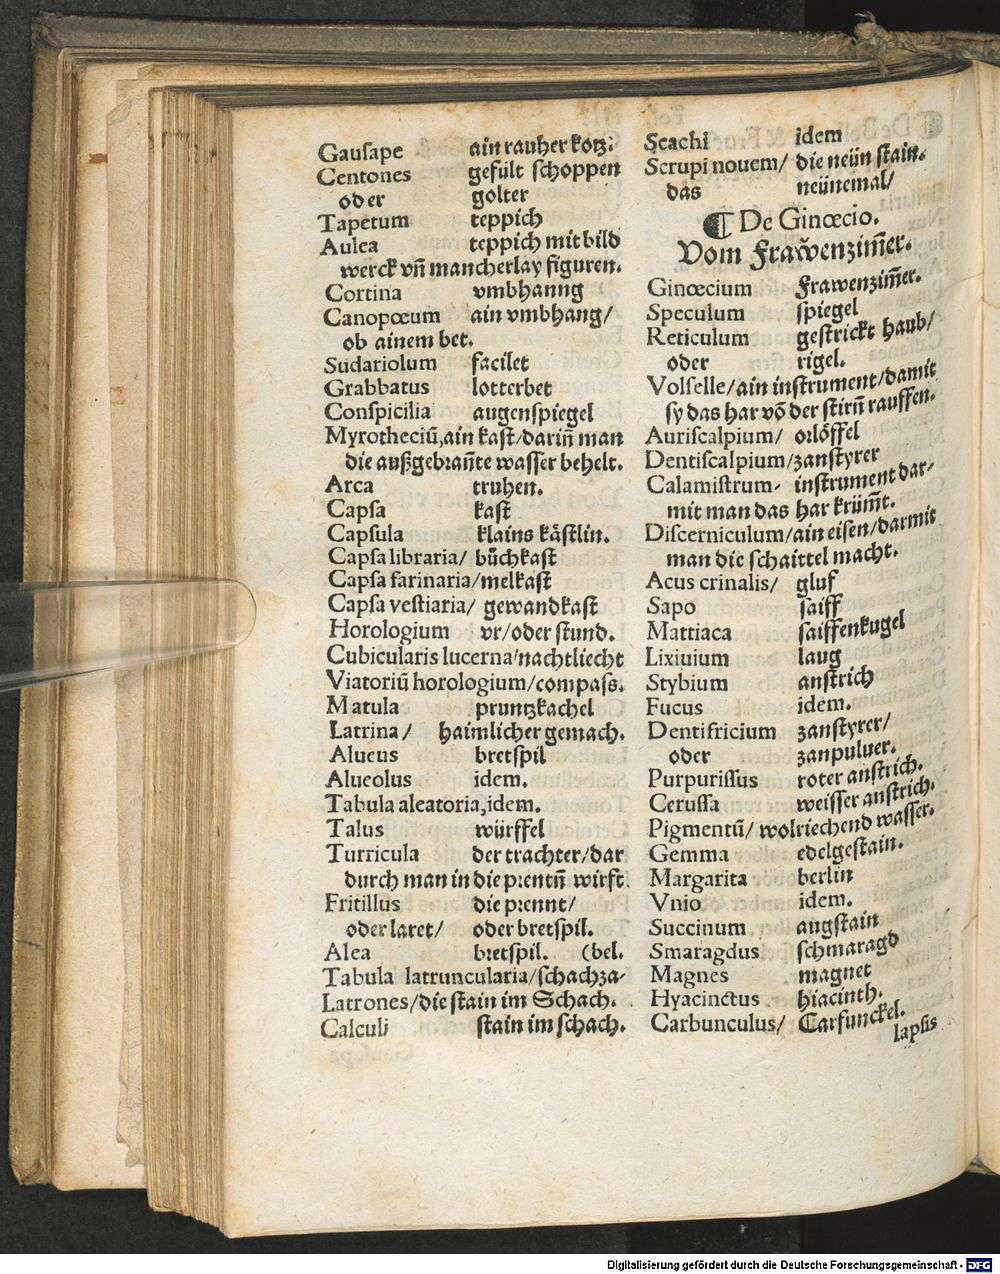 Gauſape ain rauher kotz.
Centones gefült ſchoppen
oder golter
Tapetum teppich
Aulea teppich mit bild
werck vñ mancherlay figuren.
Cortina vmbhanng
Canopœum ain vmbhang/
ob ainem bet.
Sudariolum facilet
Grabbatus lotterbet
Conſpicilia augenſpiegel
Myrotheciū,ain kaſt/dariñ man
die außgebrañte waſſer behelt.
Arca truhen.
Capſa kaſt
Capſula klains käſtlin.
Capſa libraria/ bůchkaſt
Capſa farinaria/melkaſt
Capſa veſtiaria/ gewandkaſt
Horologium vr/oder ſtund.
Cubicularis lucerna/nachtliecht
Viatoriū horologium/compaſs.
Matula pruntzkachel
Latrina/ haimlicher gemach.
Alueus bretſpil
Alueolus idem.
Tabula aleatoria,idem.
Talus würffel
Turricula der trachter/dar
durch man in die prentñ wirft.
Fritillus die prennt/
oder laret/ oder bretſpil.
Alea bretſpil. (bel.
Tabula latruncularia/ſchachza-
Latrones/die ſtain im Schach.
Calculi ſtain im ſchach.
Scachi idem
Scrupi nouem/ die neün ſtain.
das neünemal/
¶ De Ginœcio.
Vom Frawenzim̃er.
Ginœcium Frawenzim̃er.
Speculum ſpiegel
Reticulum geſtrickt haub/
oder rigel.
Volſelle/ain inſtrument/damit
ſy das har võ der ſtirñ rauffen.
Auriſcalpium/ orlöffel
Dentiſcalpium/zanſtyrer
Calamiſtrum- inſtrument dar-
mit man das har krüm̃t.
Diſcerniculum/ain eiſen/darmit
man die ſchaittel macht.
Acus crinalis/ gluf
Sapo ſaiff
Mattiaca ſaiffenkugel
Lixiuium laug
Stybium anſtrich
Fucus idem.
Dentifricium zanſtyrer/
oder zanpuluer.
Purpuriſſus roter anſtrich.
Ceruſſa weiſſer anſtrich.
Pigmentū/ wolriechend waſſer.
Gemma edelgeſtain.
Margarita berlin
Vnio idem.
Succinum augſtain
Smaragdus ſchmaragd
Magnes magnet
Hyacinctus hiacinth.
Carbunculus/ Carfunckel.
lapſis
Digitalisierung gefördert durch die Deutsche Forschungsgemeinschaft - DFG